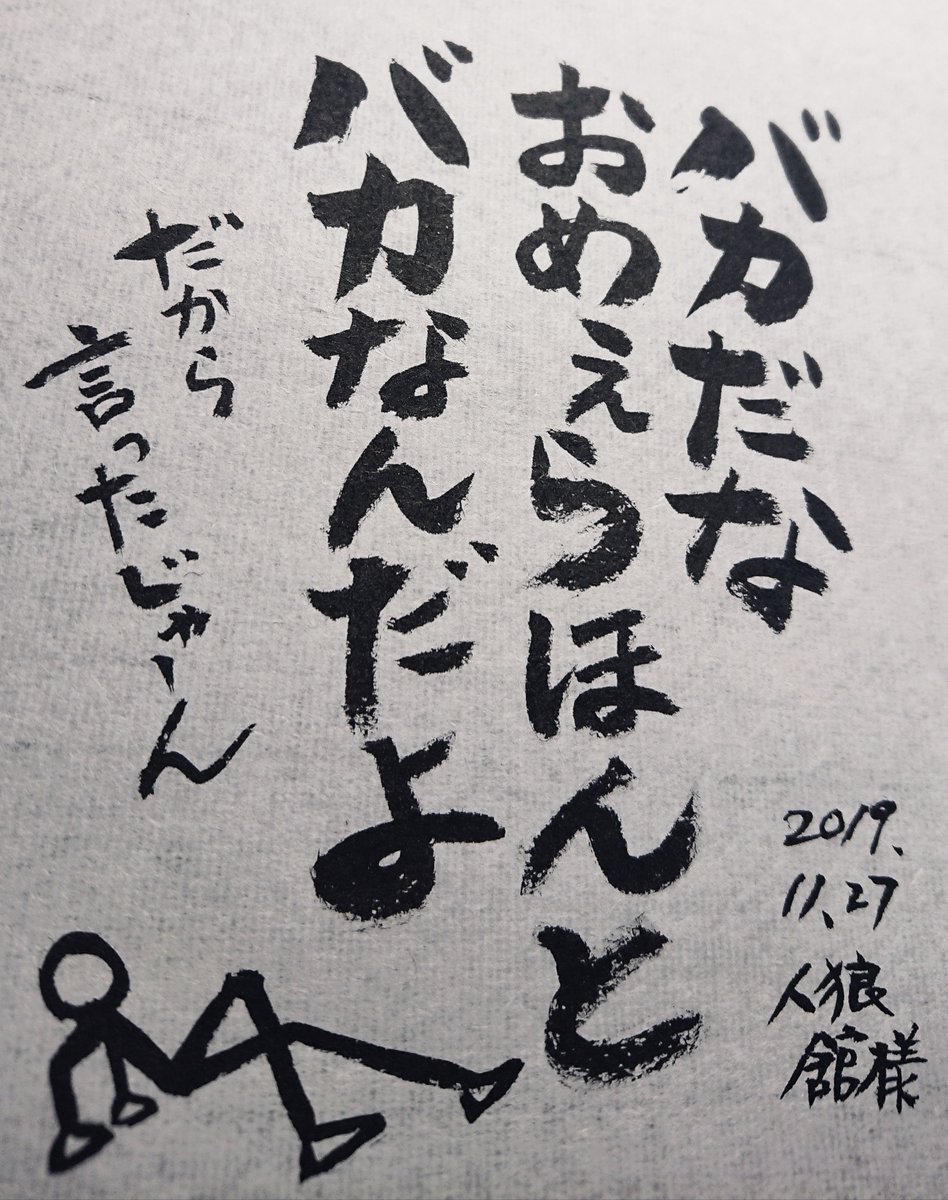 バカだな
おめぇらほんと
バカなんだよ
だから
言ったじゃーん
2019.
11.27
人狼
館様